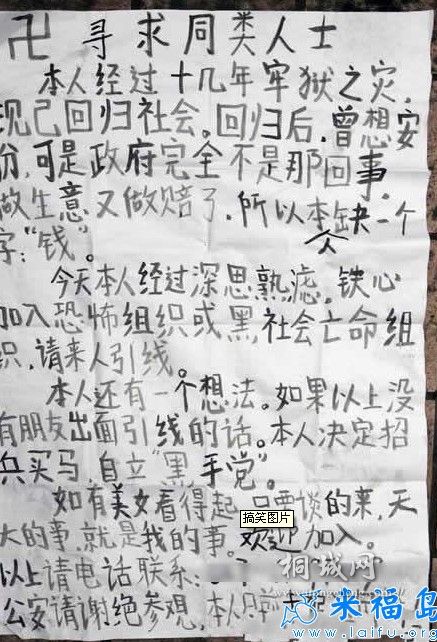 卍 寻求同类人士
本人经过十几年牢狱之灾,
现已回归社会。回归后,曾想安
份,可是政府完全不是那回事,
做生意又做赔了,所以本人缺一个
字:“钱”。
今天本人经过深思熟虑,铁心
加入恐怖组织或黑社会亡命组
织,请来人引线。
本人还有一个想法。如果以上没
有朋友出面引线的话。本人决定招
兵买马 自立“黑手党”。
如有美女看得起,只要谈的来,天
搞笑图片
大的事,就是我的事。欢迎加入。
以上请电话联系:
桐城网
公安请谢绝参观,本人
来福岛
www.laifu.org